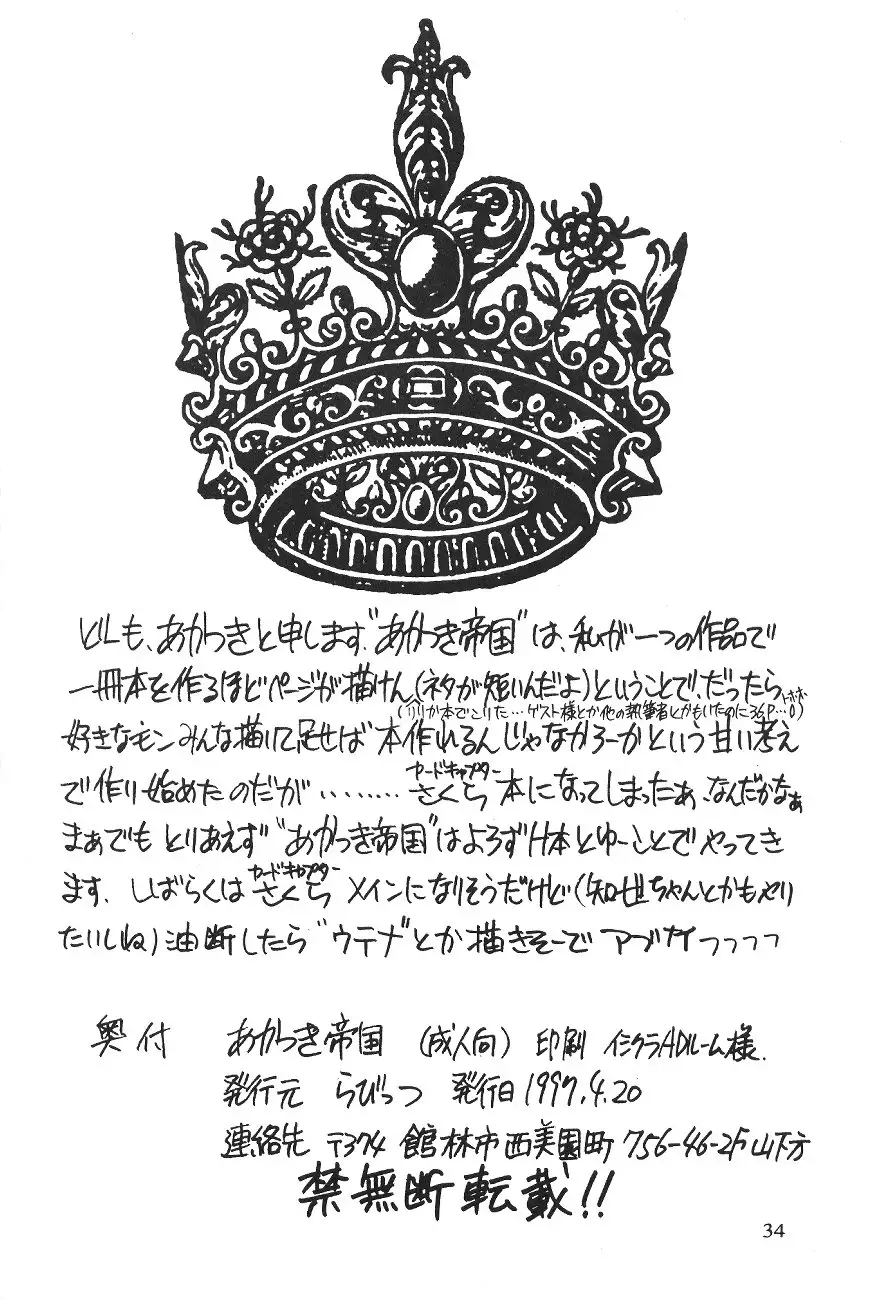 ども、あかつきと申します。"あかつき帝国"は、私が一つの作品で
一冊本を作るほどページが描けん(ネタが短いんだよ)ということで、だったら
(りりか本でこりた…ゲスト様とか他の執筆者とかもいたのに36P…0)トホホ
好きなモンみんな描いて足せば本作れるんじゃなかろーかという甘い考え
で作り始めたのだが………さくら本になってしまったぁ、なんだかなぁ
カードキャプター
まぁでもとりあえず"あかつき帝国"はよろずH本とゆーことでやってき
ます。しばらくはさくらメインになりそうだけど(知世ちゃんとかもやり
カードキャプター
たいしね)油断したら"ウテナ"とか描きそーでアブナイっっっっ
奥付 あかつき帝国 (成人向) 印刷 イシクラADルーム様.
発行元 らびっつ 発行日1997.4.20
連絡先 〒374 館林市西美園町756-46-2F山下方
禁無断転載!!
34